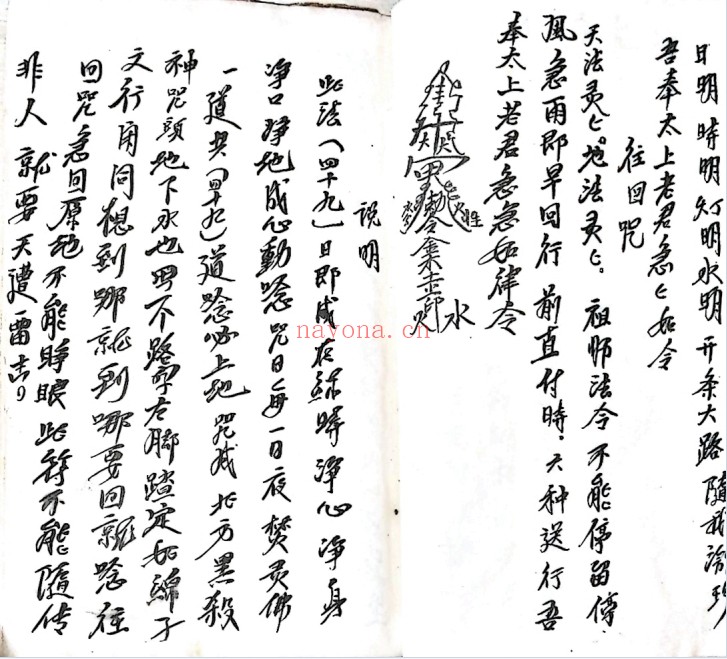 日明時明知明水明开条大路隨我
吾奉太上老君急〻如令
往回咒
天法灵〻。地法灵〻。祖师法令不能停留停.
風急雨即早回行前直付時.六种送行吾
奉太上老君急急如律令
水
说明
此法(四十九)日即成在練時淨心淨身
净口净地成心動唸咒日每一日夜焚灵佛
一道共(四十九)道唸必上地咒成北方黑殺
神咒頭地下水也四个路字左脚踏定如綿子
文行用问想到哪就到哪要回就唸往
回咒急回原地不能睁眼此符不能隨传
非人就要天遭雷击
nayona.cn